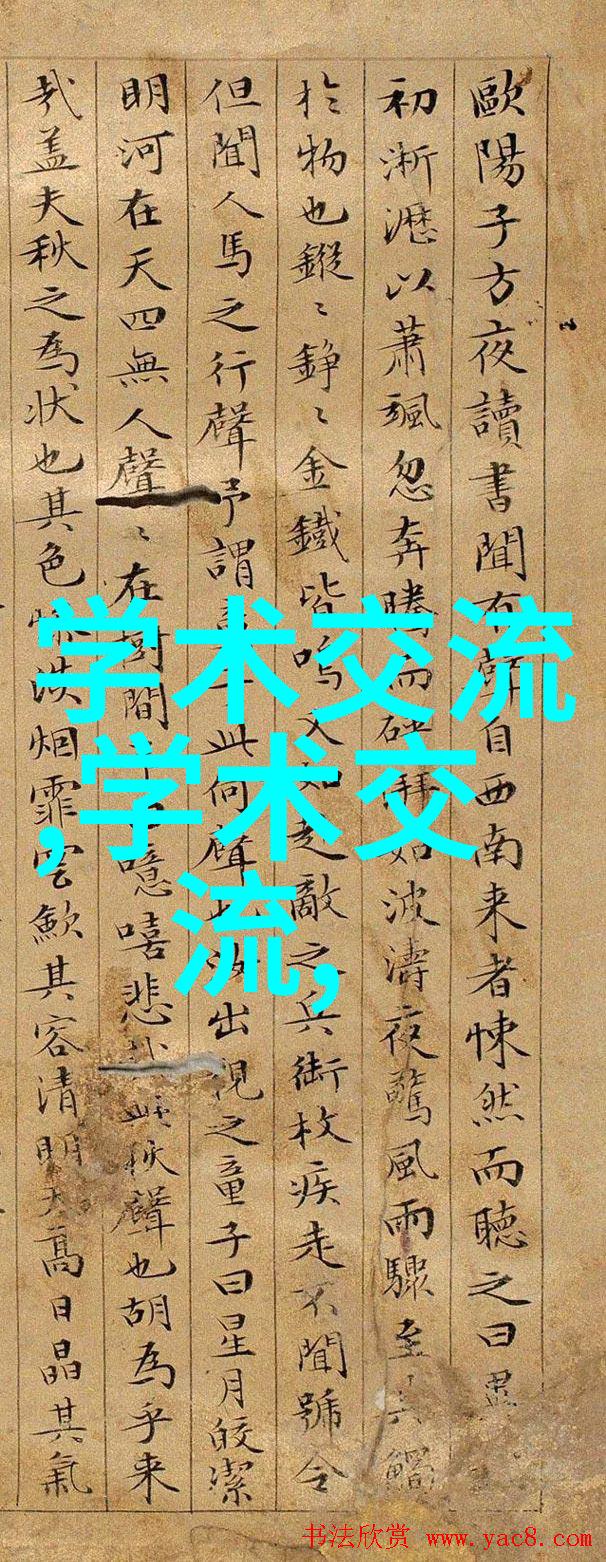 歐陽子方夜讀書聞有聲自西南来者悚然而聽之曰異
初淅瀝以蕭颯忽奔騰而砰拜如波濤夜驚風雨驟至其觸
於物也鏦〻錚〻金鐵皆鳴又如敵之兵銜枚疾走不聞號令
但聞人馬之行聲予謂童子此何聲也汝出視之童子曰星月皎潔
明河在天四無人聲〻在樹間予曰噫嘻悲哉此秋聲也胡為乎来
哉盖夫秋之為状也其色惨淡烟霏雲歛其容清明天高日晶其氣
学术交流
,学术交
流,
书法欣赏 www.yac8.com